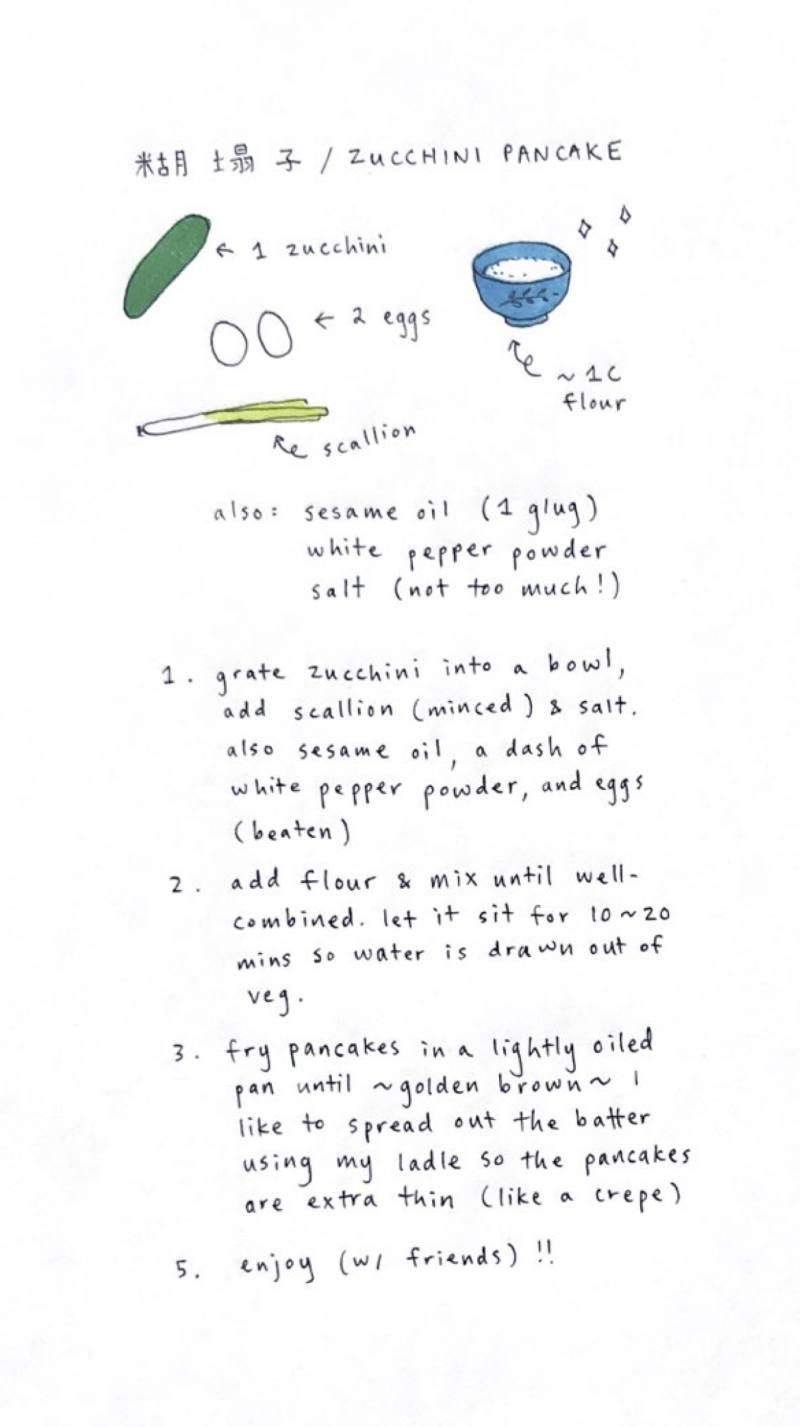 糊塌子 / ZUCCHINI PANCAKE
← 1 zucchini
← 2 eggs
~1C
flour
scallion
also: sesame oil (1 glug)
white pepper powder
salt (not too much!)
1. grate zucchini into a bowl,
add scallion (minced) & salt.
also sesame oil, a dash of
white pepper powder, and eggs
(beaten)
2. add flour & mix until well-
combined. let it sit for 10~20
mins so water is drawn out of
veg.
3. fry pancakes in a lightly oiled
pan until ~golden brown~ I
like to spread out the batter
using my ladle so the pancakes
are extra thin (like a crepe)
5. enjoy (w/ friends)!!